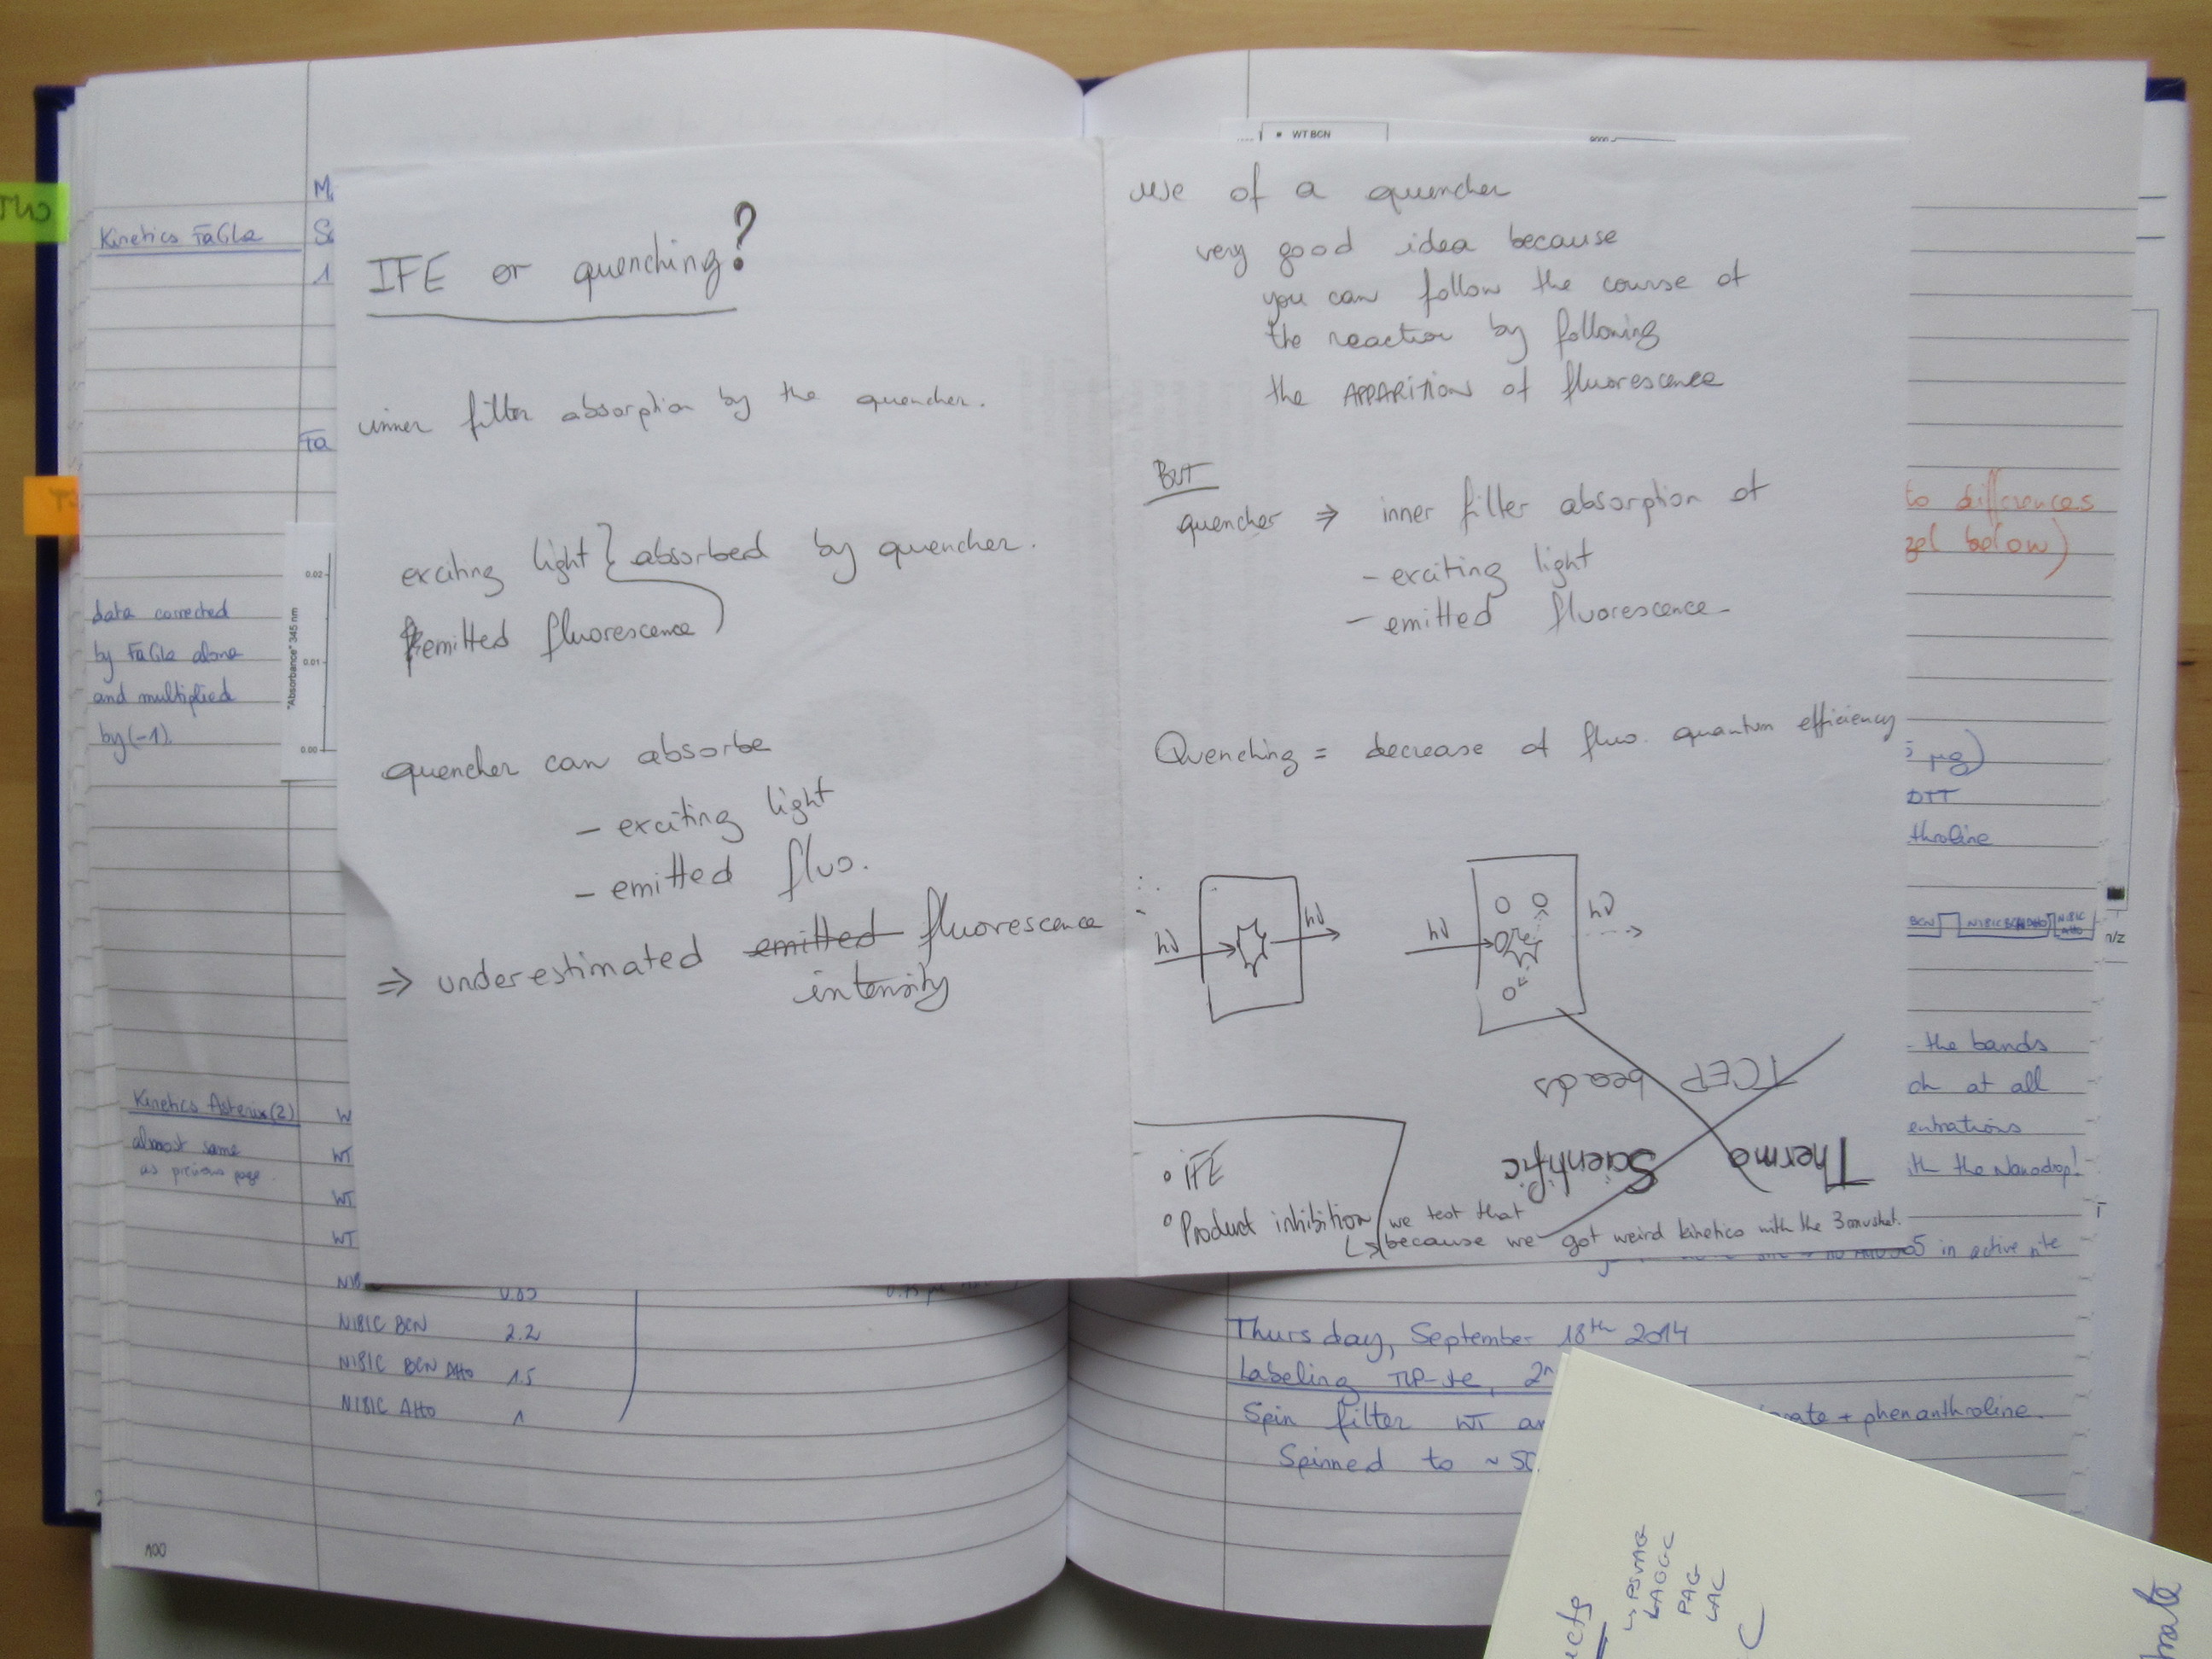 Kinetics FaGLa
data corrected
by FaGLa alone
and multiplied
by (-1).
"Absorbance" 345 nm
0.02
0.01
0.00
Kinetics Asterix (2)
almost same
as previous page.
WT
WT
WT
N181C BCN 2.2
N181C BCN Atto 1.5
N181C Atto 1
100
IFE or quenching?
inner filter absorption by the quencher.
exciting light } absorbed by quencher.
emitted fluorescence
quencher can absorbe
- exciting light
- emitted fluo.
⇒ underestimated emitted fluorescence
intensity
WT BCN
use of a quencher
very good idea because
you can follow the course of
the reaction by following
the APPARITION of fluorescence
BUT
quencher ⇒ inner filter absorption of
- exciting light
- emitted fluorescence
Quenching = decrease of fluo. quantum efficiency
hν hν hν hν
TCEP beads
Thermo Scientific
° IFE
° Product inhibition
we test that
↳ because we got weird kinetics with the 3 mushet.
to differences
gel below)
µg)
DTT
BCN N181C BCN Atto N181C Atto
m/z
the bands
at all
the Nanodrop!
in active site
Thursday, September 18th 2014
Labeling
Spin filter WT
+ phenanthroline.
Spinned to ~
PAG